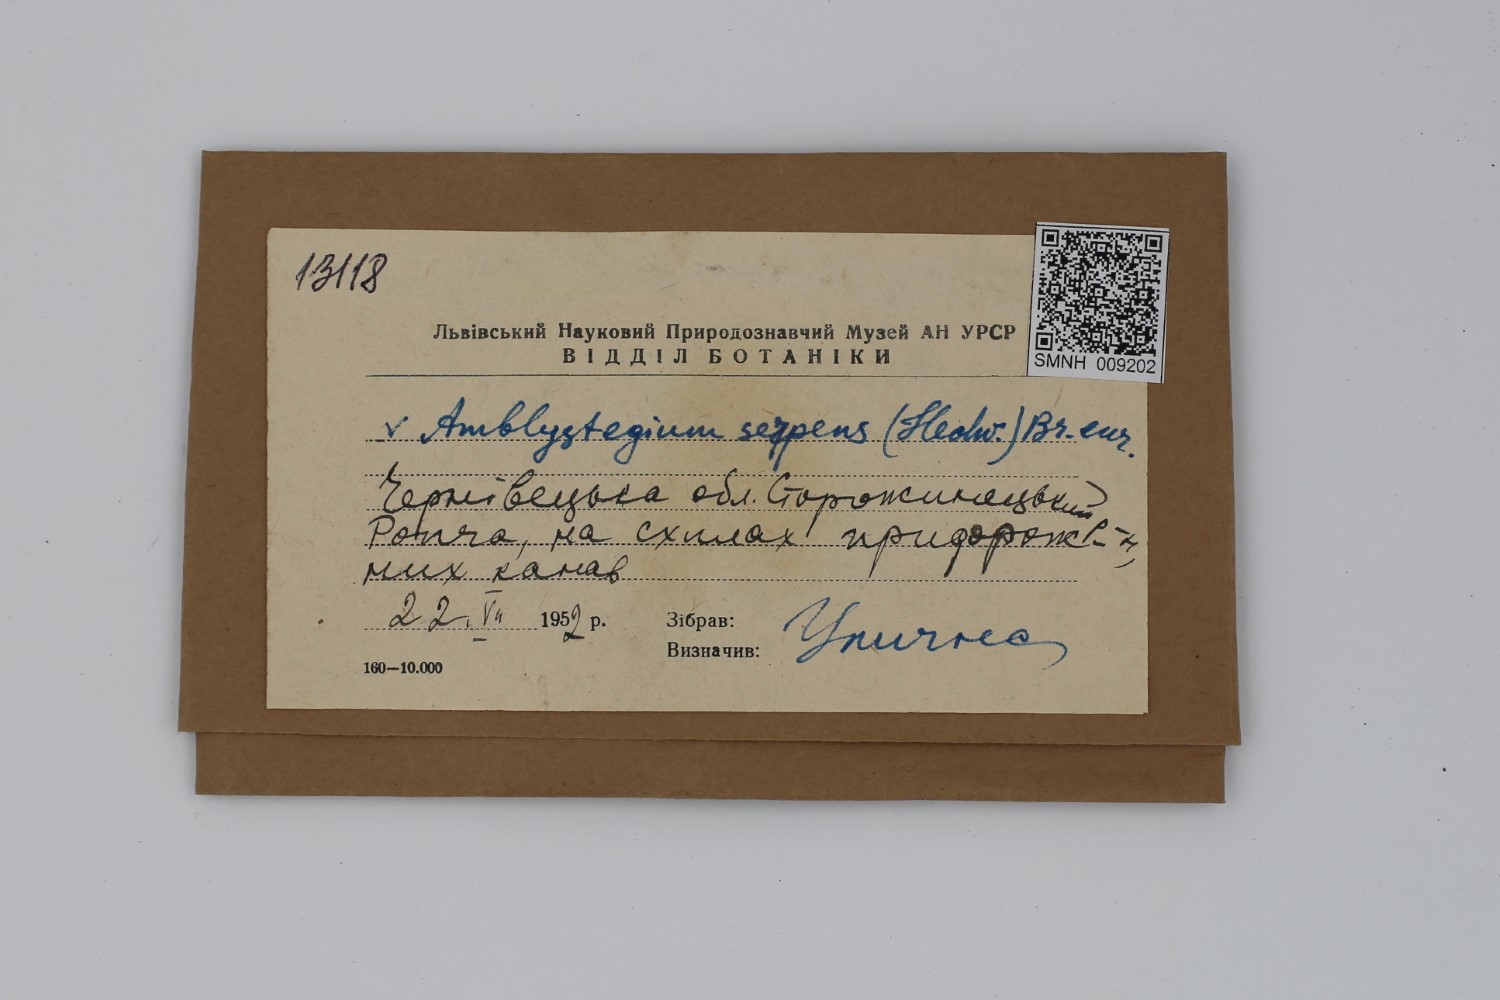 13118
Львівський Науковий Природознавчий Музей АН УРСР
ВІДДІЛ БОТАНІКИ
SMNH 009202
v Amblystegium serpens (Hedw.) Br. eur.
Чернівецька обл. Сторожинецький
Ропча, на схилах придорож-
них канав
22.VII 1952 р.
Зібрав:
Визначив: Улична
160—10.000